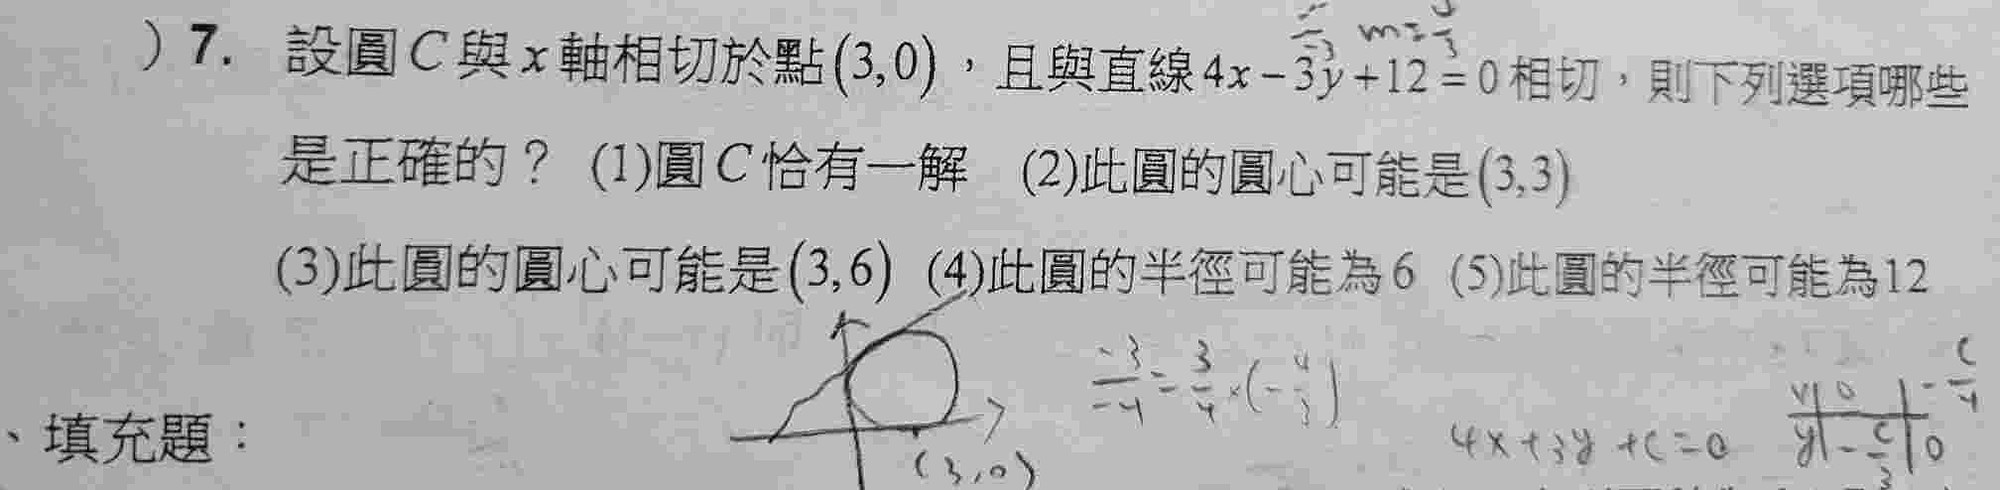 m=
) 7. 設圓C與x軸相切於點(3,0)，且與直線4x-3y+12=0相切，則下列選項哪些
是正確的？ (1)圓C恰有一解 (2)此圓的圓心可能是(3,3)
(3)此圓的圓心可能是(3,6) (4)此圓的半徑可能為6 (5)此圓的半徑可能為12
-3/-4 = 3/4 × (-4/3)
4x+3y+c=0
(3,0)
、填充題：